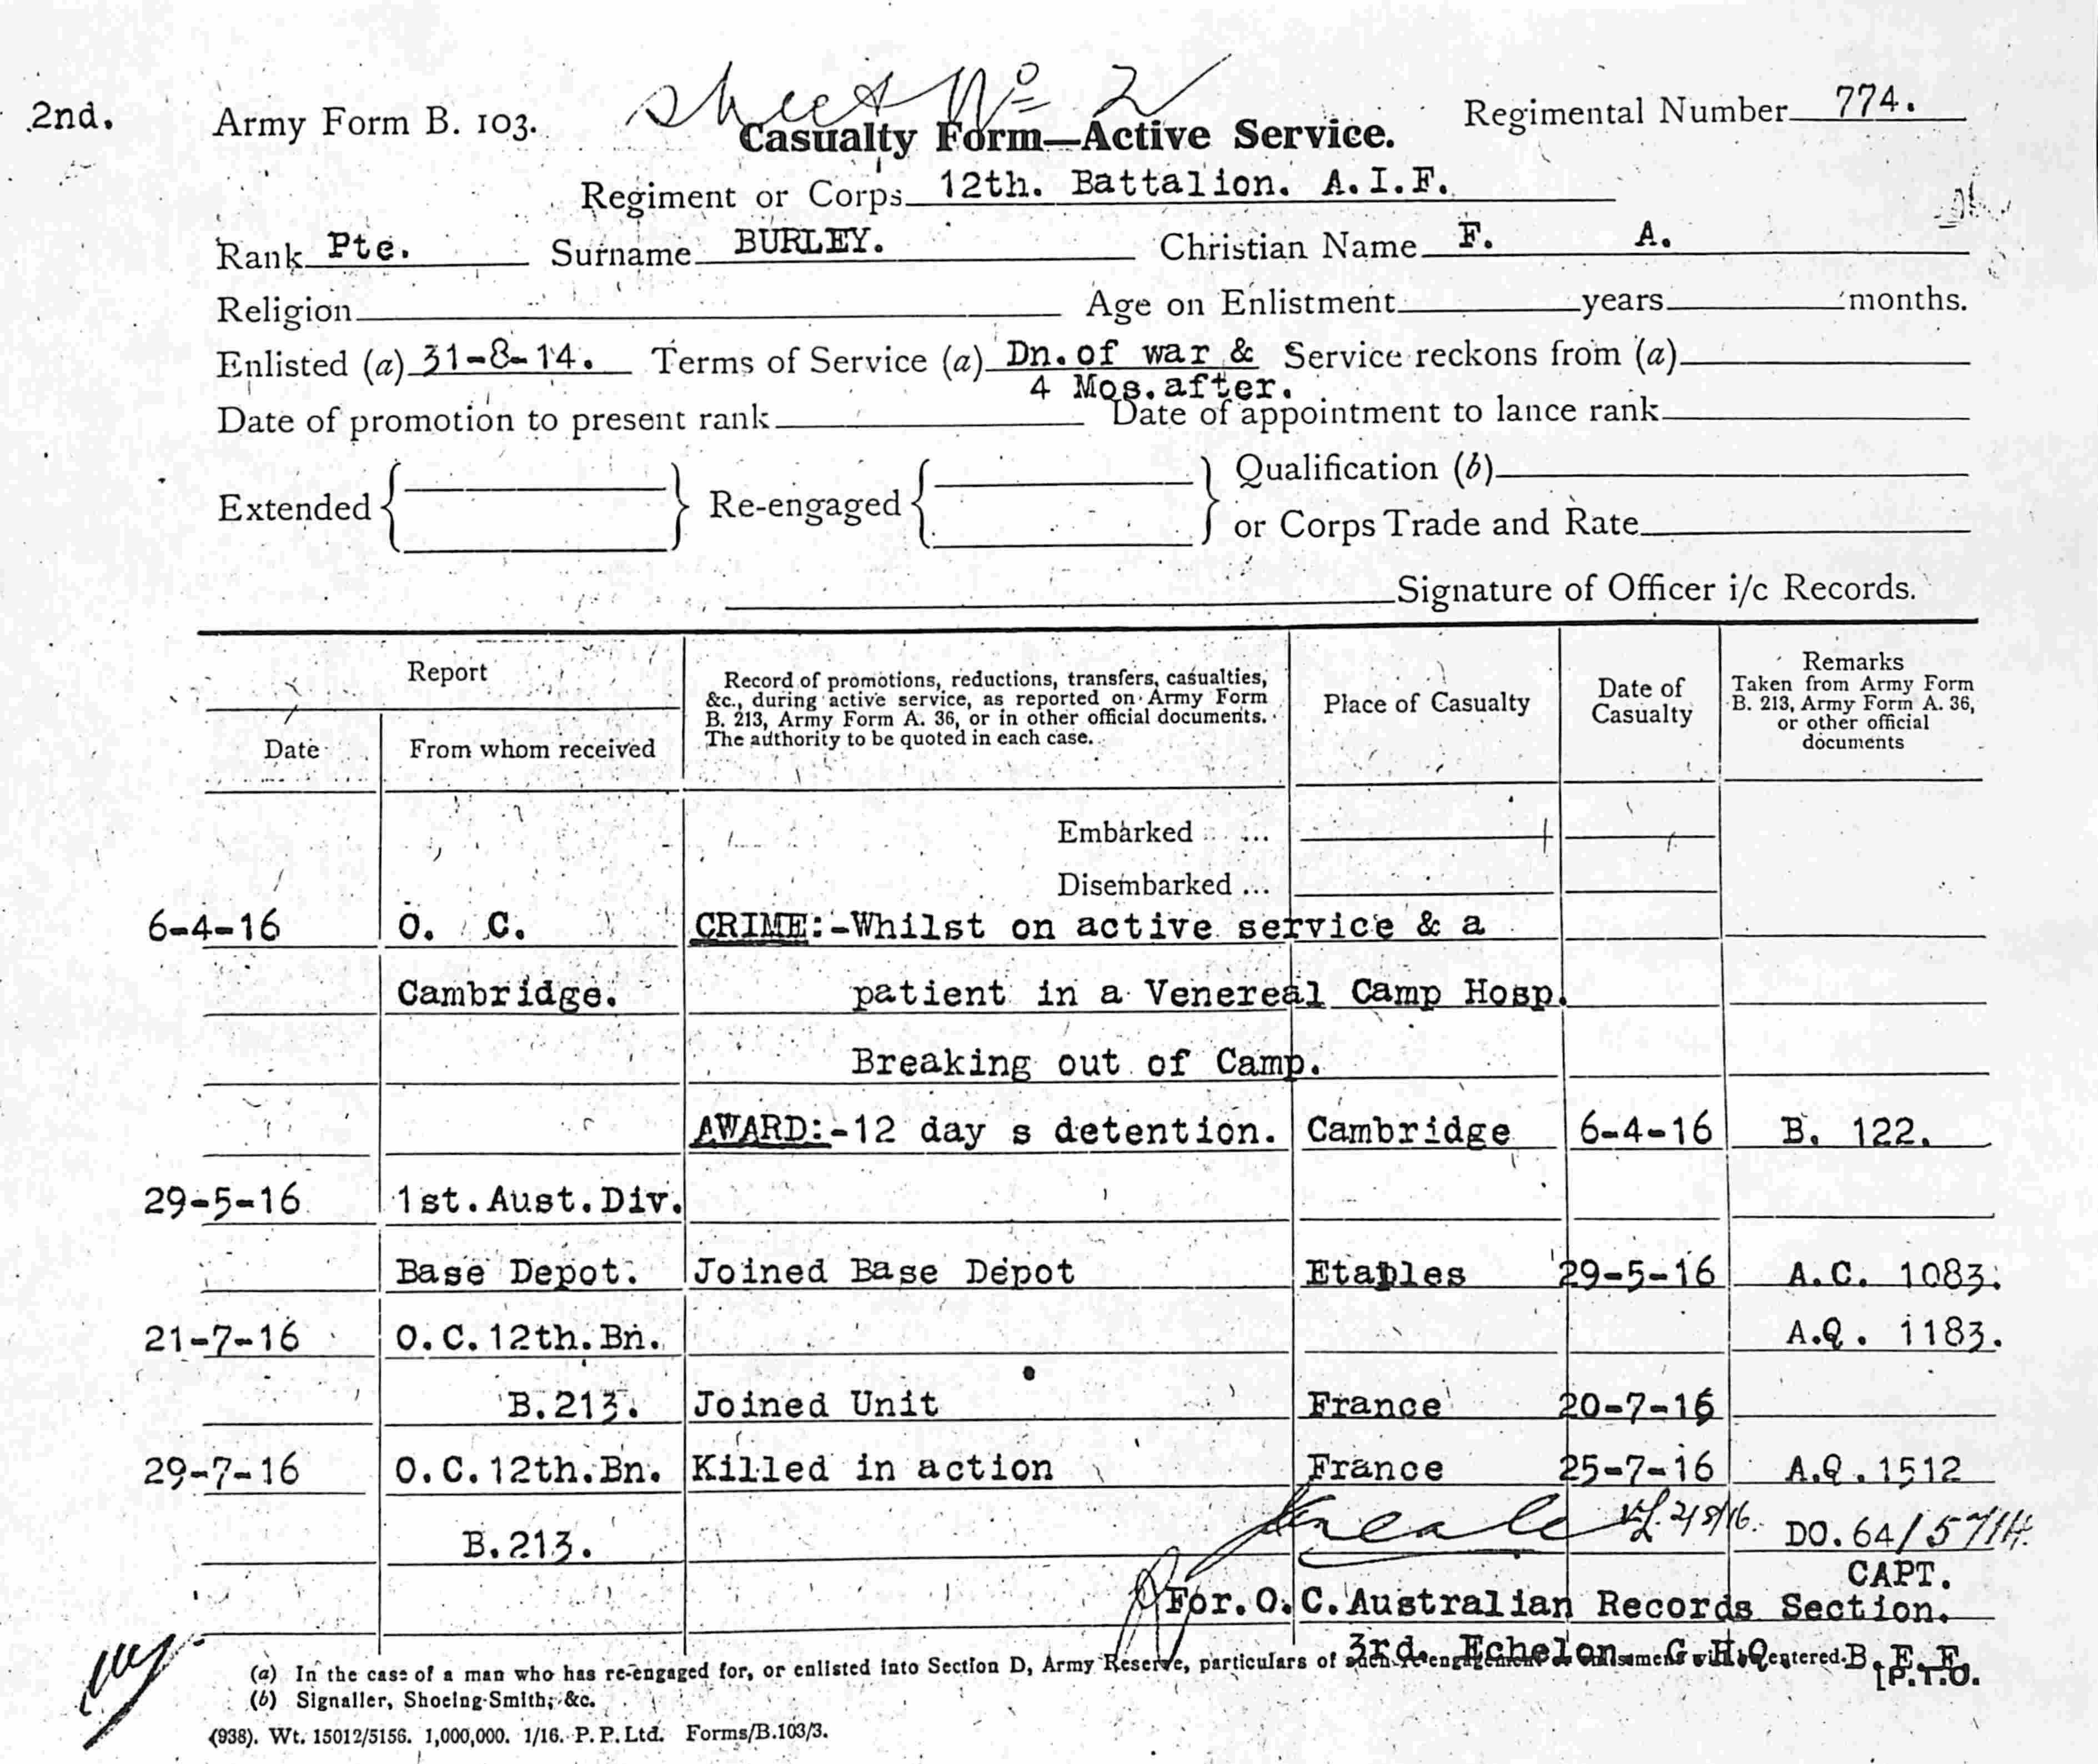 Sheet No 2
2nd. Army Form B. 103. Casualty Form—Active Service. Regimental Number 774.
Regiment or Corps 12th. Battalion. A.I.F.
Rank Pte. Surname BURLEY. Christian Name F. A.
Religion Age on Enlistment years months.
Enlisted (a) 31-8-14. Terms of Service (a) Dn.of war & Service reckons from (a)
4 Mos.after.
Date of promotion to present rank Date of appointment to lance rank
Extended Re-engaged Qualification (b)
or Corps Trade and Rate
Signature of Officer i/c Records.
Report
Date
From whom received
Record of promotions, reductions, transfers, casualties,
&c., during active service, as reported on Army Form
B. 213, Army Form A. 36, or in other official documents.
The authority to be quoted in each case.
Place of Casualty
Date of
Casualty
Remarks
Taken from Army Form
B. 213, Army Form A. 36,
or other official
documents
Embarked ...
Disembarked ...
6-4-16 O. C. CRIME:-Whilst on active service & a
Cambridge. patient in a Venereal Camp Hosp.
Breaking out of Camp.
AWARD:-12 day s detention. Cambridge 6-4-16 B. 122.
29-5-16 1st.Aust.Div.
Base Depot. Joined Base Depot Etaples 29-5-16 A.C. 1083.
21-7-16 O.C.12th.Bn. A.Q. 1183.
B.213. Joined Unit France 20-7-16
29-7-16 O.C.12th.Bn. Killed in action France 25-7-16 A.Q.1512
B.213. 2/8/16. DO.64/5714.
CAPT.
For.O.C.Australian Records Section.
3rd. Echelon G.H.Q. B.E.F.
(a) In the case of a man who has re-engaged for, or enlisted into Section D, Army Reserve, particulars of such re-engagement or enlistment will be entered.
(b) Signaller, Shoeing-Smith, &c. [P.T.O.
(938). Wt. 15012/5156. 1,000,000. 1/16. P.P.Ltd. Forms/B.103/3.